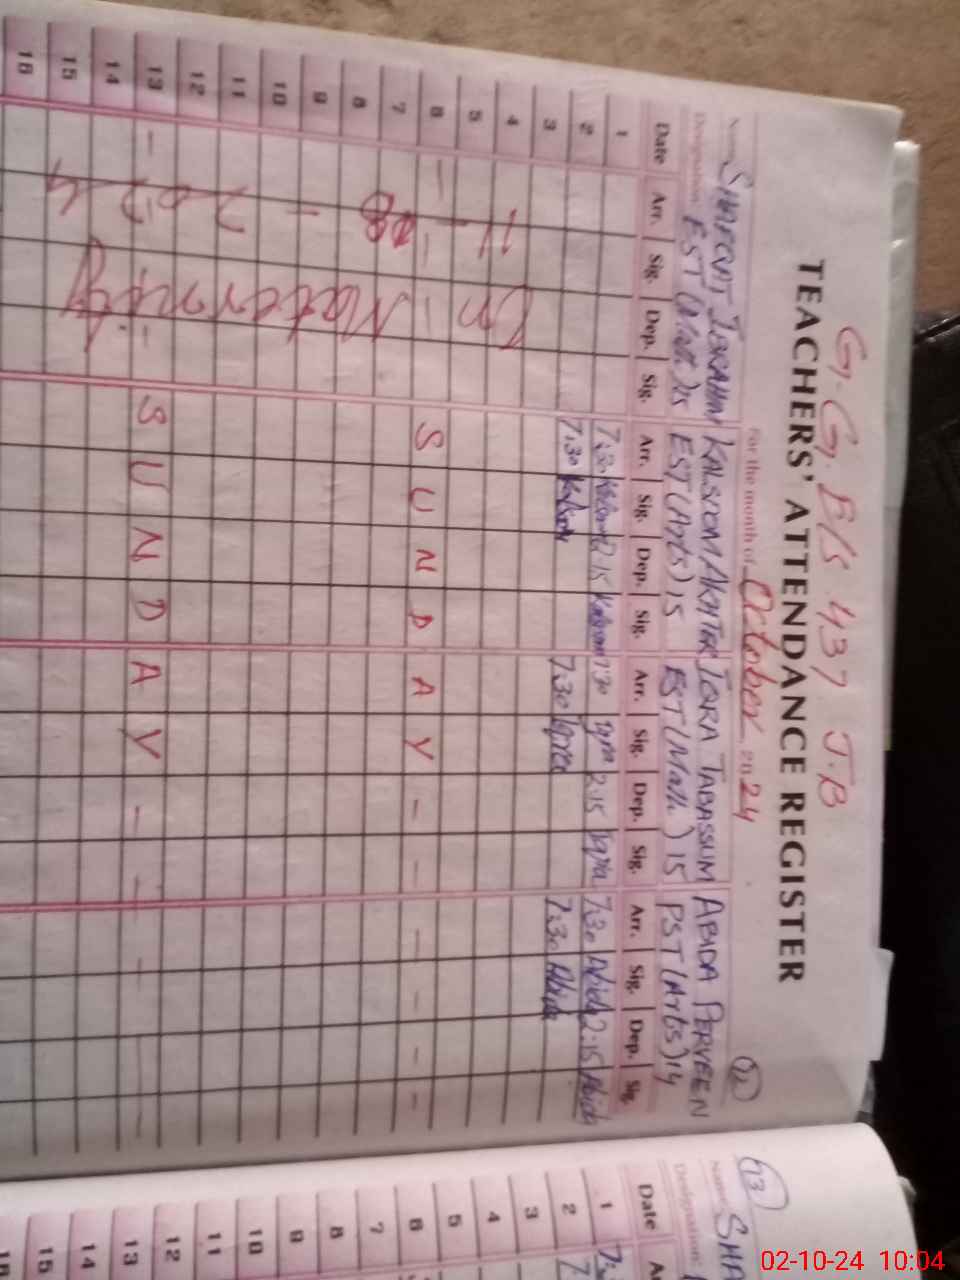 G.G.E/S 437 J.B
TEACHERS' ATTENDANCE REGISTER
12
For the month of October 2024
Name SHAFQAT IBRAHIM KALSOOM AKHTER IQRA TABASSUM ABIDA PERVEEN
Designation EST (Math) 15 EST (Arts) 15 EST (Math) 15 PST (Arts) 14
Date Arr. Sig. Dep. Sig. Arr. Sig. Dep. Sig. Arr. Sig. Dep. Sig. Arr. Sig. Dep. Sig.
1 7:30 Kalsoom 2:15 Kalsoom 7:30 Iqra 2:15 Iqra 7:30 Abida 2:15 Abida
2 7:30 Kalsoom 7:30 Iqra 7:30 Abida
3
4
5
6 - - - S U N D A Y - - - - - -
7
8
9
10
11
12
13 - - - - S U N D A Y - - - - -
14
15
16
On Maternity
2024
13
Name SHA
Designation:
Date A
1 7:
2 7
3
4
5
6
7
8
9
10
11
12
13
14
15
02-10-24 10:04